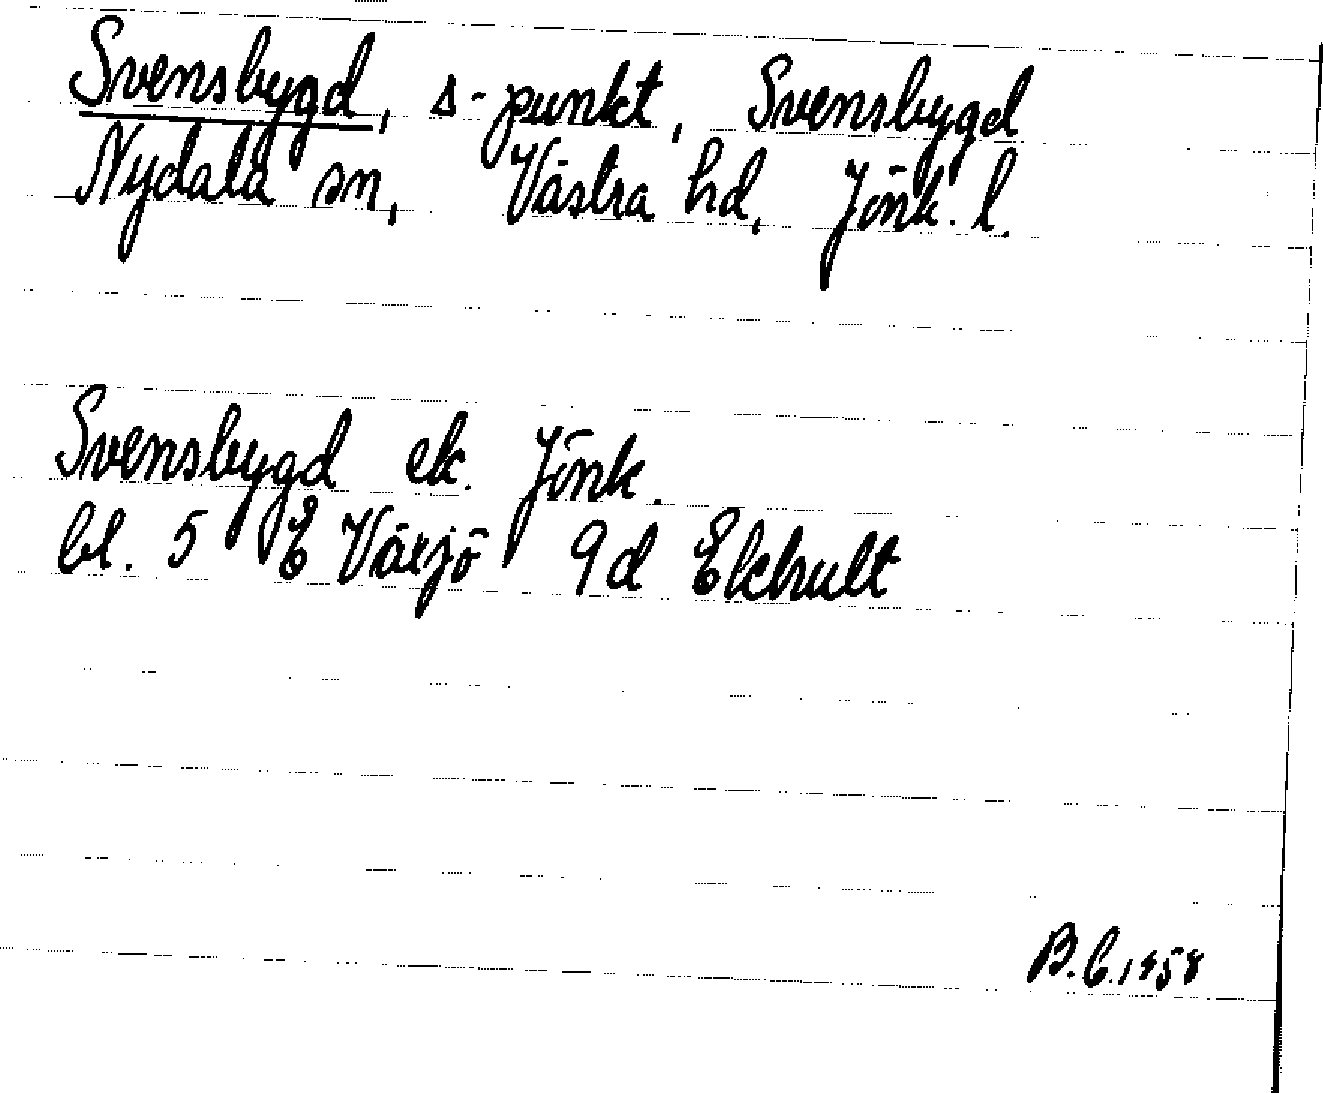 Svensbygd, Δ-punkt, Svensbygd
Nydala sn, Västra hd, Jönk. l.
Svensbygd ek. Jönk.
bl. 5 E Växjö 9d Ekhult
B.C. 1958